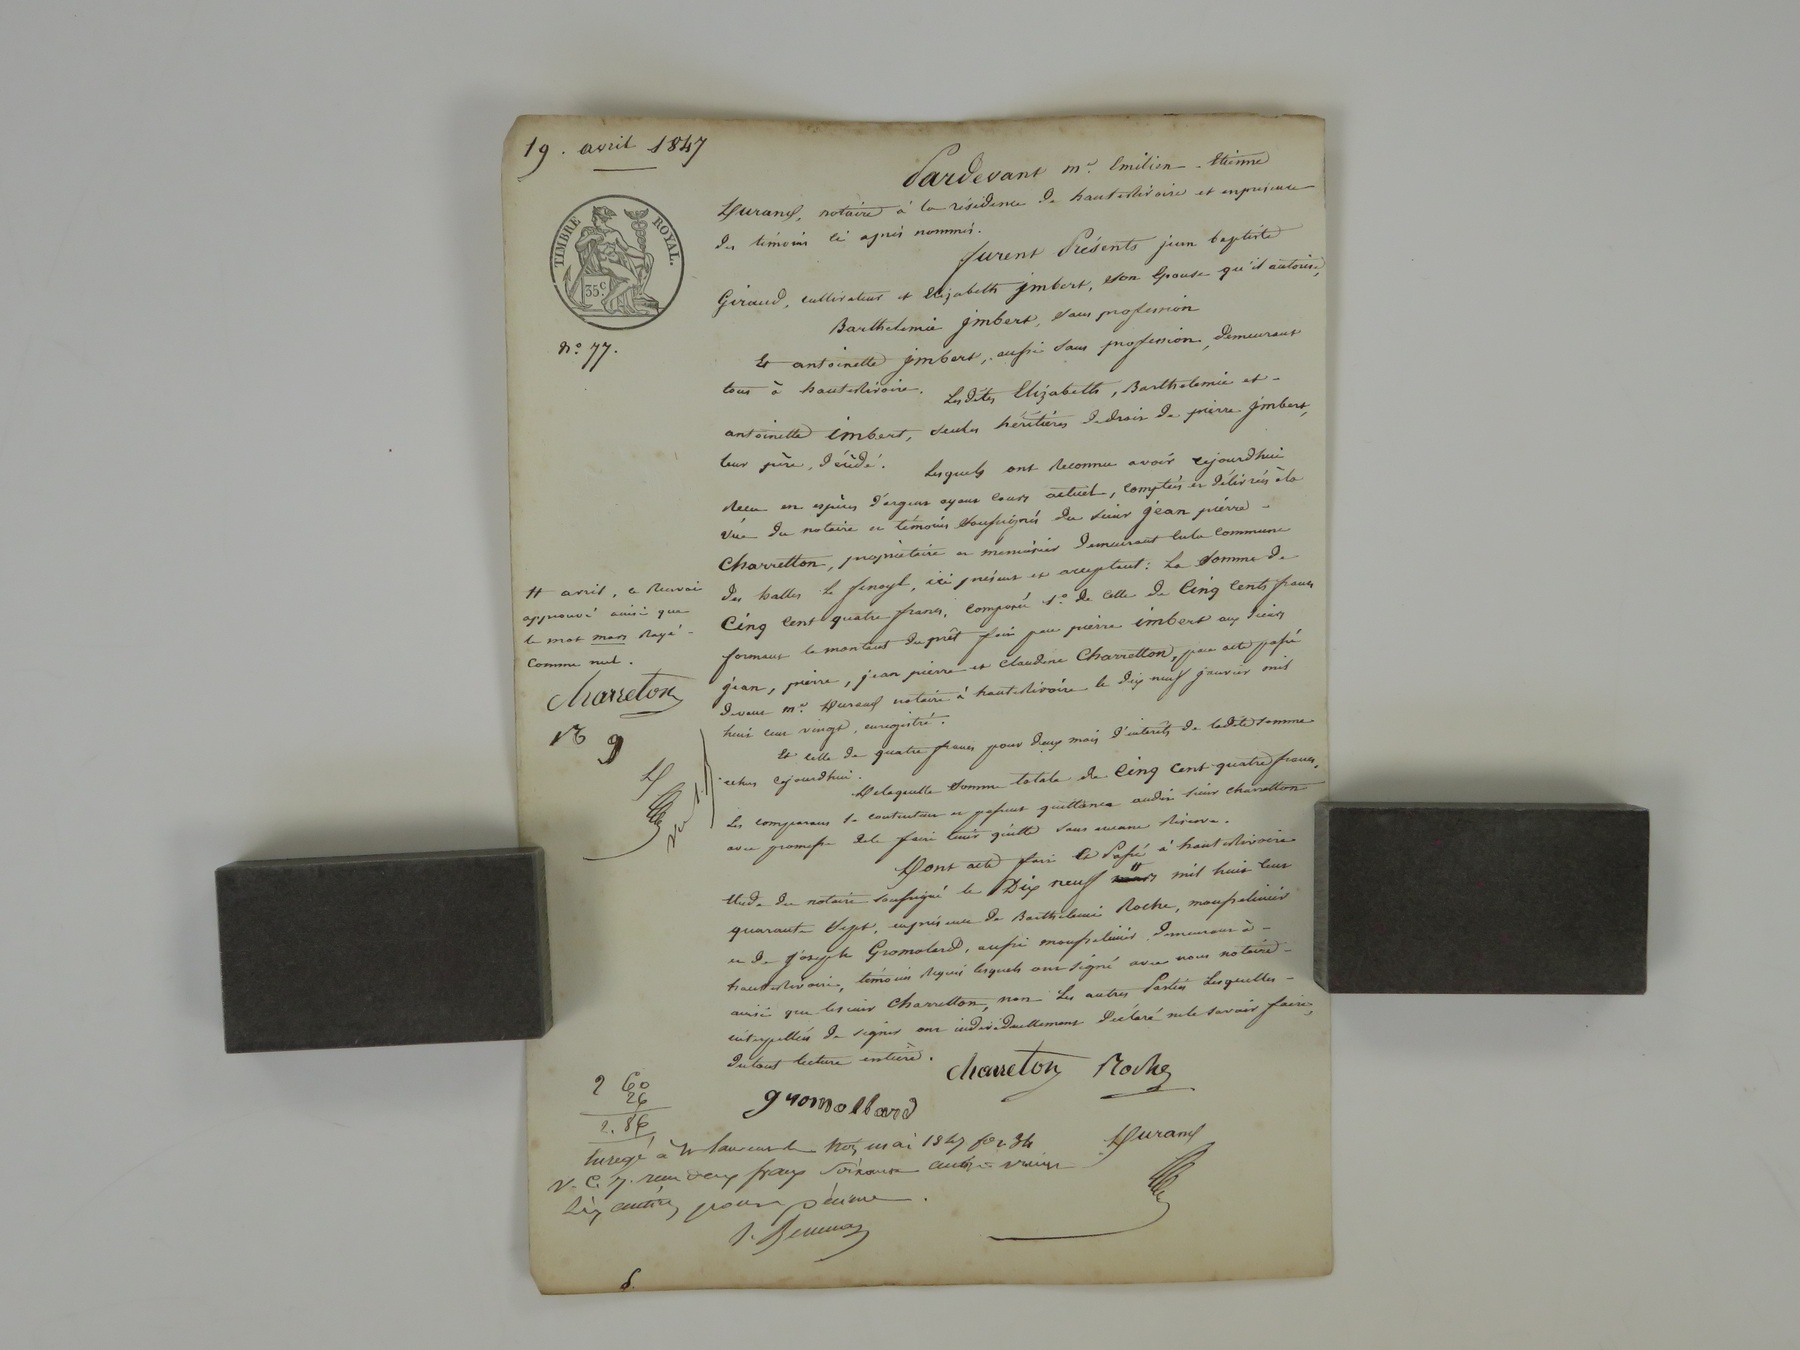 19. avril 1847
TIMBRE ROYAL.
35 c.
N.o 77.
Pardevant m.e Emilien-Etienne
Durand, notaire à la résidence de hauterivoire et en présence
des témoins ci après nommés.
furent Présents jean baptiste
Giraud, cultivateur et Elizabeth jmbert, son Epouse qu'il autorise,
Barthelemie jmbert, sans profession
Et antoinette jmbert, aussi sans profession, demeurant
tous à hauterivoire. Lesdites Elizabeth, Barthelemie et -
antoinette imbert, seules héritières dedroit de pierre jmbert,
leur père, décédé. Lesquels ont Reconnu avoir cejourdhui
Recu en espèces d'argent ayant cours actuel, comptées et délivrées à la
vue du notaire et témoins soussignés du sieur jean pierre -
Charretton, propriétaire et menuisier demeurant enla commune
des halles le fenoyl, ici présent et acceptant: La Somme de
Cinq Cent quatre francs, composée 1.o de celle de Cinq Cents francs
formant le montant du prêt fait par pierre imbert aux sieurs
jean, pierre, jean pierre et Claudine Charretton, par acte passé
devant m.e Durand notaire à hauterivoire le dix neuf janvier mil
huit cent vingt, enregistré.
Et celle de quatre francs pour deux mois d'intérêts de ladite somme
echus cejourdhui.
Delaquelle Somme totale de Cinq Cent quatre francs,
Les comparans se contentent et passent quittance audit sieur charretton
avec promesse dele faire tenir quitte sans aucune Réserve.
Dont acte fait et Passé à hauterivoire
Etude du notaire soussigné le Dix neuf mars # mil huit cent
quarante Sept, enprésence de Barthelemi Roche, mousselinier
et de Joseph Gromolard, aussi mousselinier demeurant à -
hauterivoire, témoins Requis lesquels ont signé avec nous notaire -
ainsi que lesieur Charretton, non Les autres Parties Lesquelles -
interpellées de signer ont individuellement déclaré nele savoir faire,
dutout lecture entière.
# avril, ce Renvoi
approuvé ainsi que
le mot mars Rayé -
Comme nul.
Charreton
R G
D
charreton Roche
gromollard
Durand
2 60
26
2. 86
Enregé à St Laurent le mai 1847 fo 34
V. C. 7. reçu deux francs Soixante centimes
Six centimes pour décime.